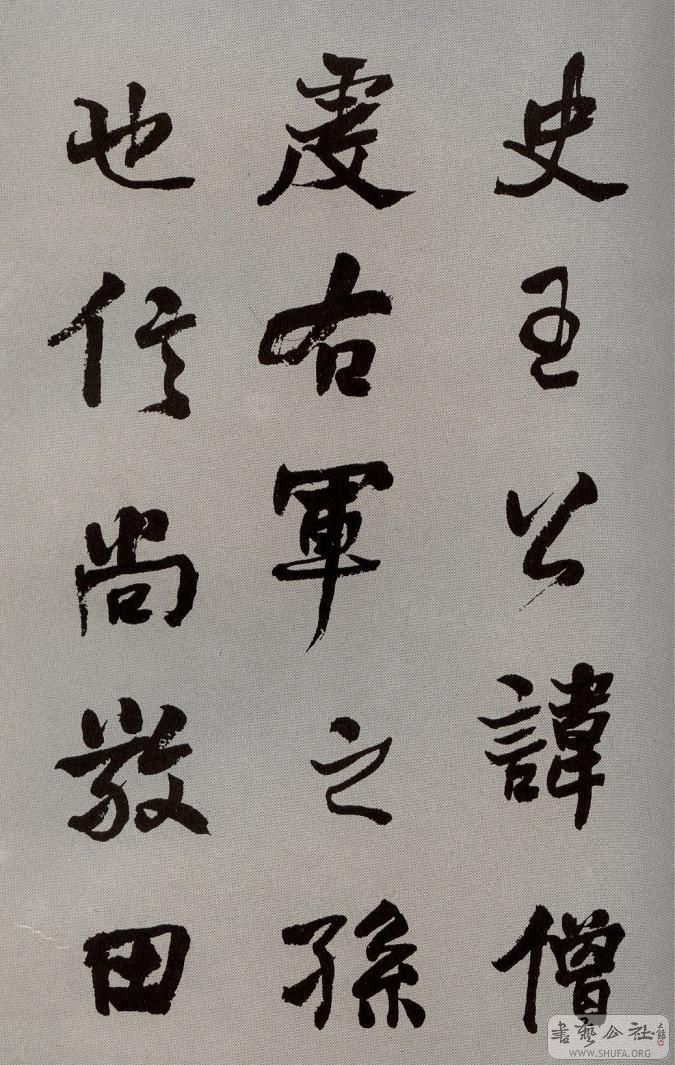 史王公諱僧
虔右軍之孫
也信尚敬田
書藝公社
WWW.SHUFA.ORG